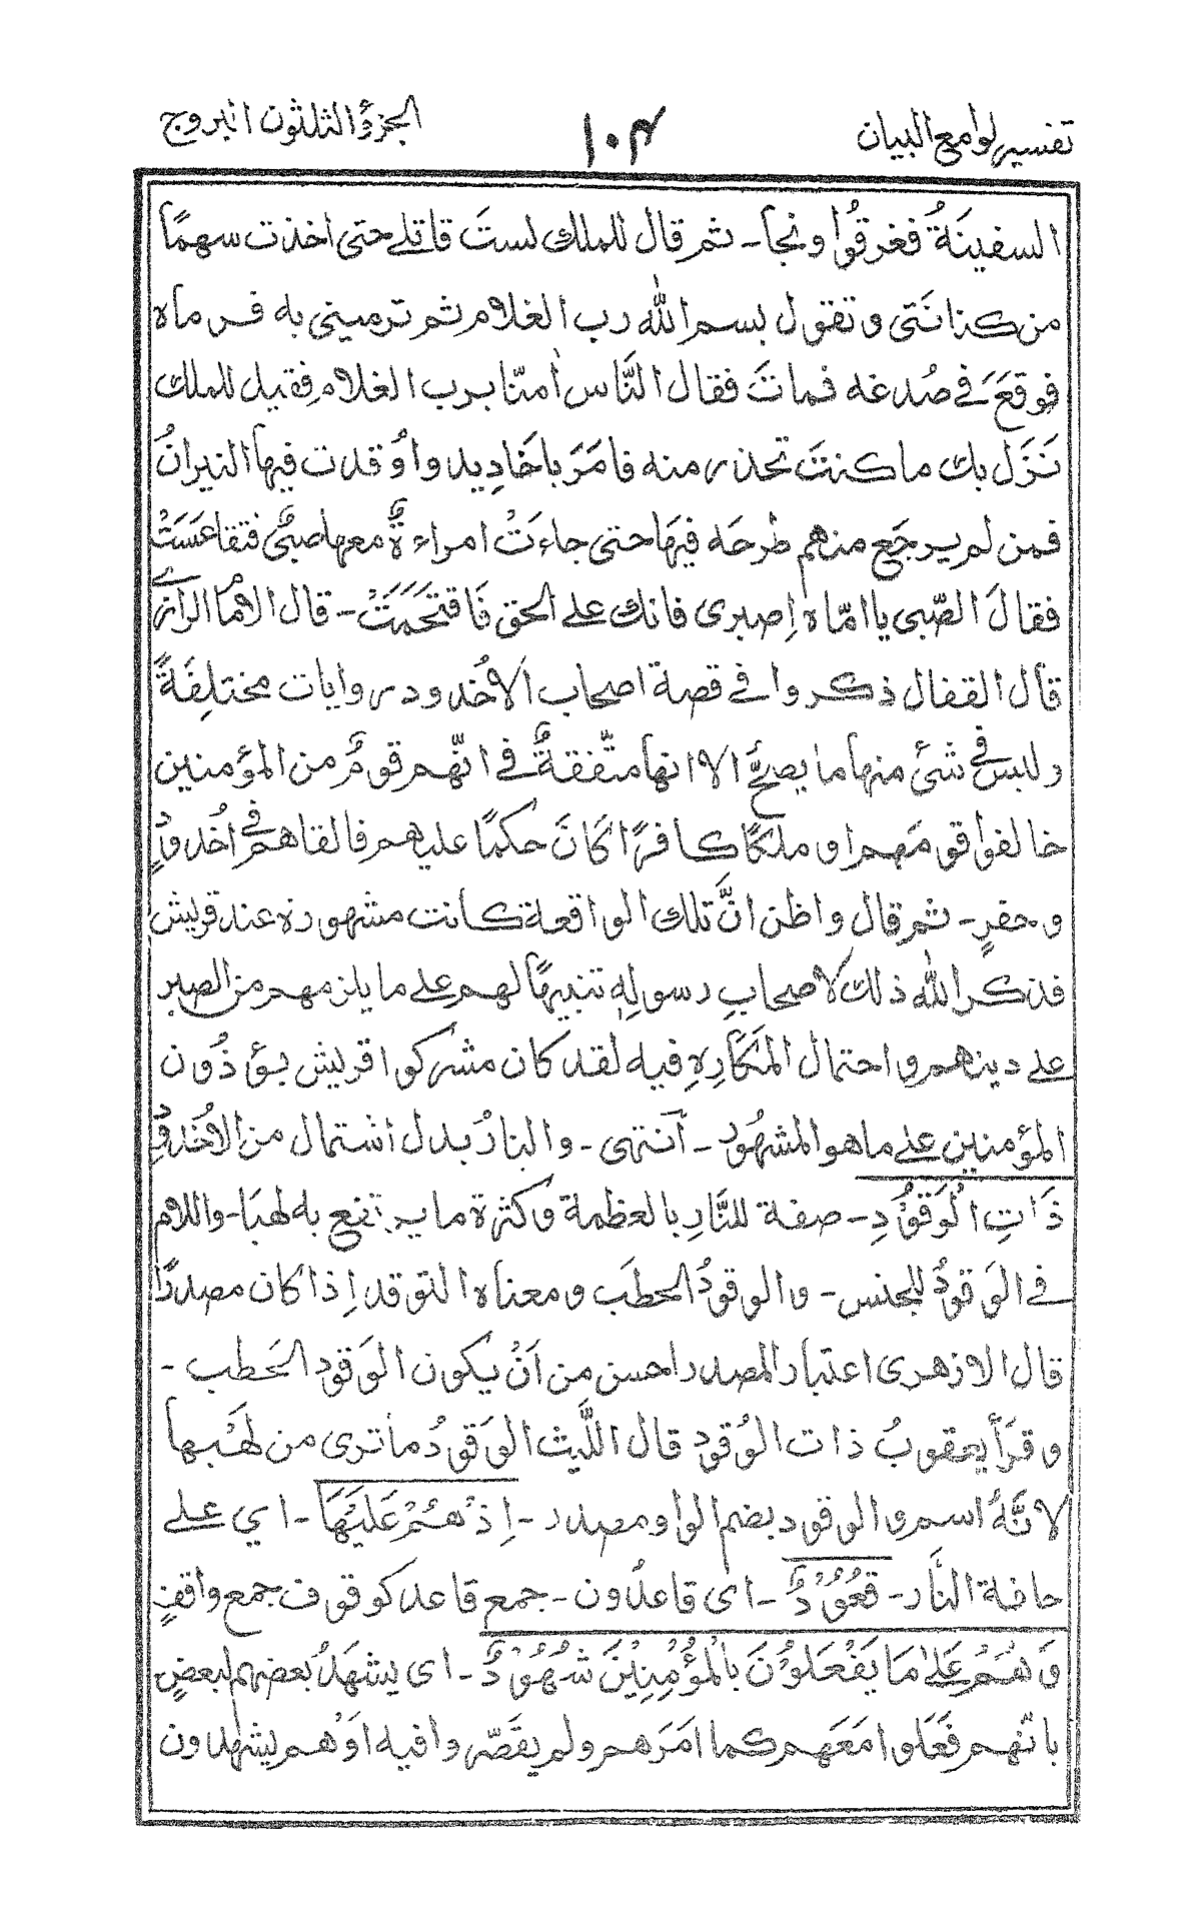 تفسير لوامع البيان ١٠٤ الجزؤ الثلثون البروج
السفينَةُ فغرقُوا ونجا ـ ثم قال للملك لستَ قاتلے حتى اخذت سهمًا
من كنانَتى وتقول بسم الله رب الغلام ثم ترمينى به فرماه
فوقعَ فے صُدغه فماتَ فقال النَّاس اٰمنّا برب الغلام فِقيل للملك
نَزَل بك ما كنتَ تحذر منه فامَرَ باخَادِيد واُوْقدت فيها النيرانُ
فمن لم يرجَع منهم طرحَه فيهَا حتى جاءَتْ امراءةٌ معها صبىٌّ فتقاعسَتْ
فقالَ الصّبى يا امّاه اِصبرى فانك علے الحق فَاقتحَمَتْ ـ قال الامام الرازىؒ
قال القفال ذكروا فے قصة اصحاب الاُخدود روايات مختلِفَةً
وليس فے شئ منها ما يصحُّ الا انها متّفقةٌ فے انّهم قومٌ من المؤمنين
خالفوا قومَهم او ملكًا كافرًا كانَ حكمًا عليهم فالقاهم فے اُخدودٍ
وحفرٍ ـ ثم قال واظن انَّ تلك الواقعة كانت مشهورة عند قريش
فذكر الله ذلك لاصحابِ رسولِهٖ تنبيهًا لهم علے ما يلزمهم من الصبر
علے دينهم واحتمال المكَارِهِ فيه لقد كان مشركوا قريش يؤذُون
المؤمنين علے ما هو المشهُود ـ اَنتهى ـ والنارُ بدل اشتمال من الاُخدودِ
ذَاتِ الْوَقُوْدِ ـ صفة للنَّارِ بالعظمة وكثرة ما يرتفع به لهبَا ـ واللام
فے الوَقودُ للجنس ـ والوقودُ الحطَب ومعناه التوقد اِذا كان مصدرًا
قال الازهرى اعتبار المصدر احسن من اَنْ يكون الوَقود الحَطب ـ
وقرَأ يعقوبُ ذات الوُقود قال اللَّيث الوَقودُ ما ترى من لهَبها
لانَّهٗ اسم والوقود بضم الواو مصدر ـ اِذْ هُمْ عَلَيْهَا ـ اي علے
حافة النَّار ـ قُعُوْدٌ ـ اى قاعدُون ـ جمع قاعد كوقوف جمع واقفٍ
وَهُمْ عَلٰے مَا يَفْعَلُوْنَ بِالْمُؤْمِنِيْنَ شُهُوْدٌ ـ اى يشهَدُ بعضهم لبعضٍ
بانّهم فَعَلوا مَعَهم كما امَرَهم ولم يقصّروا فيه اَوْ هم يشهدون